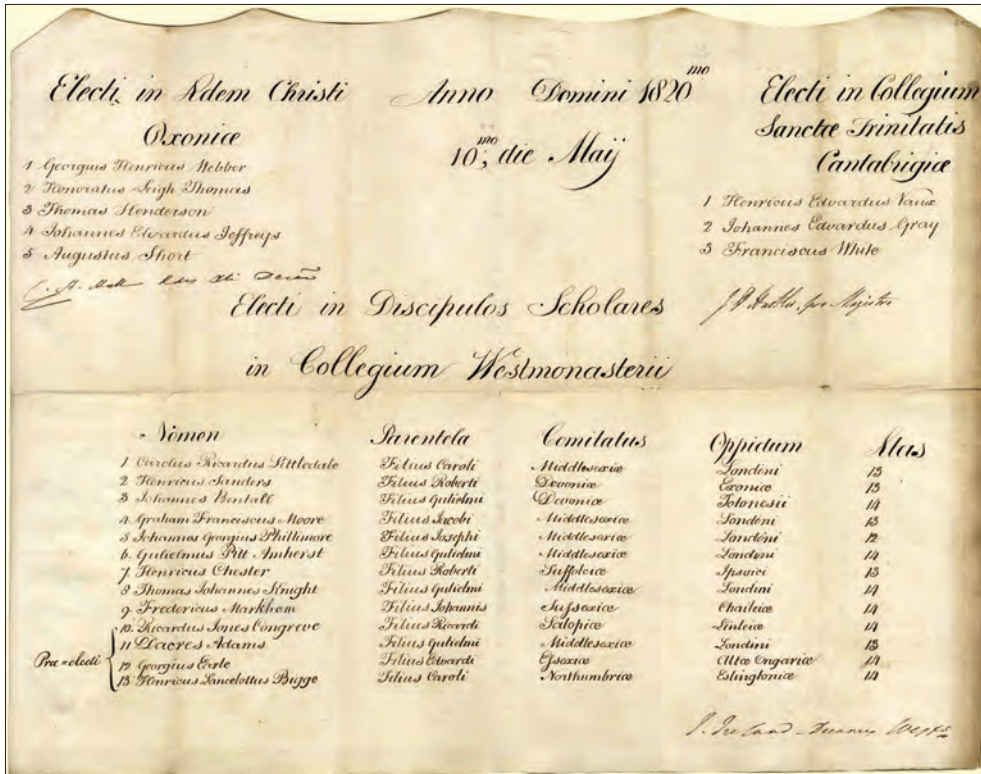 Electi in Ædem Christi
Oxoniæ
1 Georgius Henricus Webber
2 Honoratus Leigh Thomas
3 Thomas Henderson
4 Johannes Edvardus Jeffreys
5 Augustus Short
Anno Domini 1820mo
10mo; die Maij
Electi in Collegium
Sanctæ Trinitatis
Cantabrigiæ
1 Henricus Edvardus Vaux
2 Johannes Edvardus Gray
3 Franciscus White
pro Magistro
Electi in Discipulos Scholares
in Collegium Westmonasterii
Nomen Parentela Comitatus Oppidum Ætas
1 Ricardus Littledale Filius Caroli Middlesexiæ Londini 13
2 Henricus Sanders Filius Roberti Devoniæ Exoniæ 13
3 Johannes Bentall Filius Gulielmi Devoniæ Totonesii 14
4 Graham Franciscus Moore Filius Jacobi Middlesexiæ Londini 13
5 Johannes Georgius Phillimore Filius Josephi Middlesexiæ Londini 12
6 Gulielmus Pitt Amherst Filius Gulielmi Middlesexiæ Londini 14
7 Henricus Chester Filius Roberti Suffolciæ Ipsvici 13
8 Thomas Johannes Knight Filius Gulielmi Middlesexiæ Londini 14
9 Fredericus Markham Filius Johannis Sufsexiæ Chaileiæ 14
10 Ricardus Jones Congreve Filius Ricardi Salopiæ Linleiæ 14
Præ-electi
11 Dacres Adams Filius Gulielmi Middlesexiæ Londini 13
12 Georgius Evrle Filius Edvardi Efsexiæ Altæ Ongariæ 14
13 Henricus Lancelottus Bigge Filius Caroli Northumbriæ Eslingtoniæ 14
J. Ireland